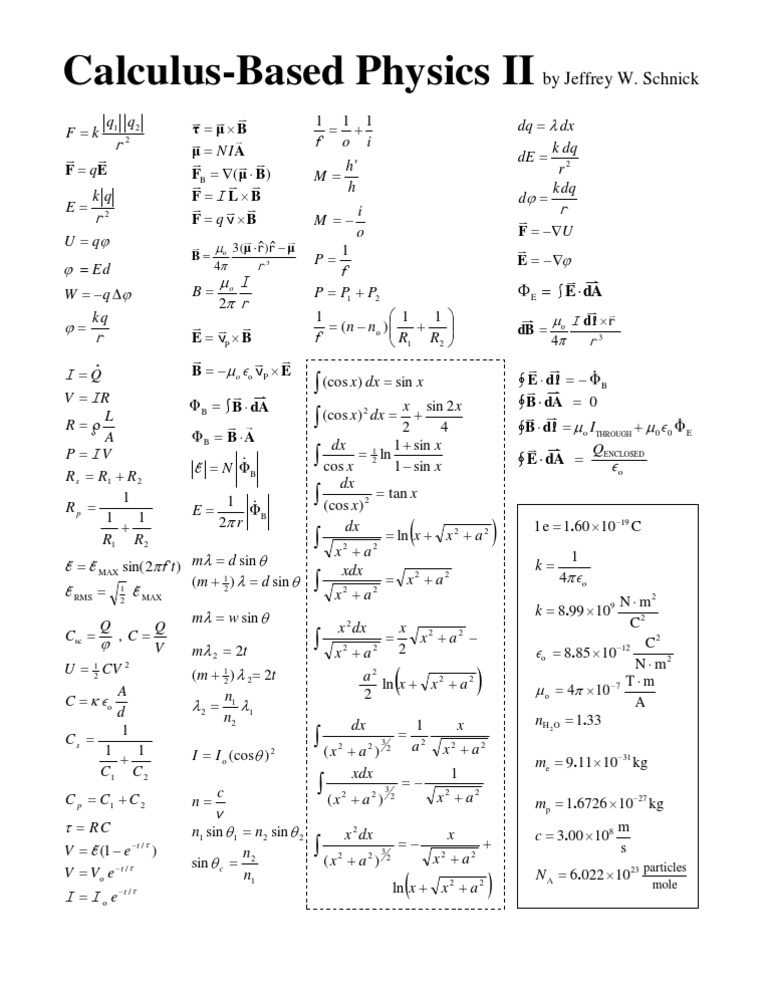 Calculus-Based Physics II by Jeffrey W. Schnick
F = k |q₁||q₂| / r²
F⃗ = qE⃗
E = k|q| / r²
U = qφ
φ = Ed
W = −qΔφ
φ = kq / r
I = Q̇
V = IR
R = ρ L/A
P = IV
R_s = R₁ + R₂
R_p = 1 / (1/R₁ + 1/R₂)
ℰ = ℰ_MAX sin(2πf t)
ℰ_RMS = √(1/2) ℰ_MAX
C_sc = Q/φ , C = Q/V
U = ½ CV²
C = κ ϵ₀ A/d
C_s = 1 / (1/C₁ + 1/C₂)
C_p = C₁ + C₂
τ = RC
V = ℰ(1 − e^(−t/τ))
V = V₀ e^(−t/τ)
I = I₀ e^(−t/τ)
τ⃗ = μ⃗ × B⃗
μ⃗ = N I A⃗
F⃗_B = ∇(μ⃗ · B⃗)
F⃗ = I L⃗ × B⃗
F⃗ = q v⃗ × B⃗
B⃗ = μ₀/4π (3(μ⃗ · r̂) r̂ − μ⃗) / r³
B = μ₀/2π I/r
E⃗ = v⃗_P × B⃗
B⃗ = −μ₀ ϵ₀ v⃗_P × E⃗
Φ_B = ∫B⃗ · dA⃗
Φ_B = B⃗ · A⃗
|ℰ| = N |Φ̇_B|
E = 1/(2πr) |Φ̇_B|
mλ = d sin θ
(m + ½) λ = d sin θ
mλ = w sin θ
mλ₂ = 2t
(m + ½) λ₂ = 2t
λ₂ = n₁/n₂ λ₁
I = I₀ (cos θ)²
n = c/v
n₁ sin θ₁ = n₂ sin θ₂
sin θ_c = n₂/n₁
1/f = 1/o + 1/i
M = h′/h
M = − i/o
P = 1/f
P = P₁ + P₂
1/f = (n − n₀)(1/R₁ + 1/R₂)
∫(cos x) dx = sin x
∫(cos x)² dx = x/2 + sin 2x/4
∫ dx/cos x = ½ ln (1 + sin x)/(1 − sin x)
∫ dx/(cos x)² = tan x
∫ dx/√(x² + a²) = ln(x + √(x² + a²))
∫ xdx/√(x² + a²) = √(x² + a²)
∫ x²dx/√(x² + a²) = x/2 √(x² + a²) −
a²/2 ln(x + √(x² + a²))
∫ dx/(x² + a²)^(3/2) = 1/a² x/√(x² + a²)
∫ xdx/(x² + a²)^(3/2) = − 1/√(x² + a²)
∫ x²dx/(x² + a²)^(3/2) = − x/√(x² + a²) +
ln(x + √(x² + a²))
dq = λ dx
dE = k dq / r²
dφ = kdq / r
F⃗ = −∇U
E⃗ = −∇φ
Φ_E = ∫E⃗ · dA⃗
dB⃗ = μ₀/4π I dl⃗ × r⃗ / r³
∮E⃗ · dl⃗ = −Φ̇_B
∮B⃗ · dA⃗ = 0
∮B⃗ · dl⃗ = μ₀ I_THROUGH + μ₀ ϵ₀ Φ̇_E
∮E⃗ · dA⃗ = Q_ENCLOSED / ϵ₀
1 e = 1.60 × 10⁻¹⁹ C
k = 1 / 4πϵ₀
k = 8.99 × 10⁹ N · m² / C²
ϵ₀ = 8.85 × 10⁻¹² C² / N · m²
μ₀ = 4π × 10⁻⁷ T · m / A
n_H₂O = 1.33
m_e = 9.11 × 10⁻³¹ kg
m_p = 1.6726 × 10⁻²⁷ kg
c = 3.00 × 10⁸ m/s
N_A = 6.022 × 10²³ particles/mole